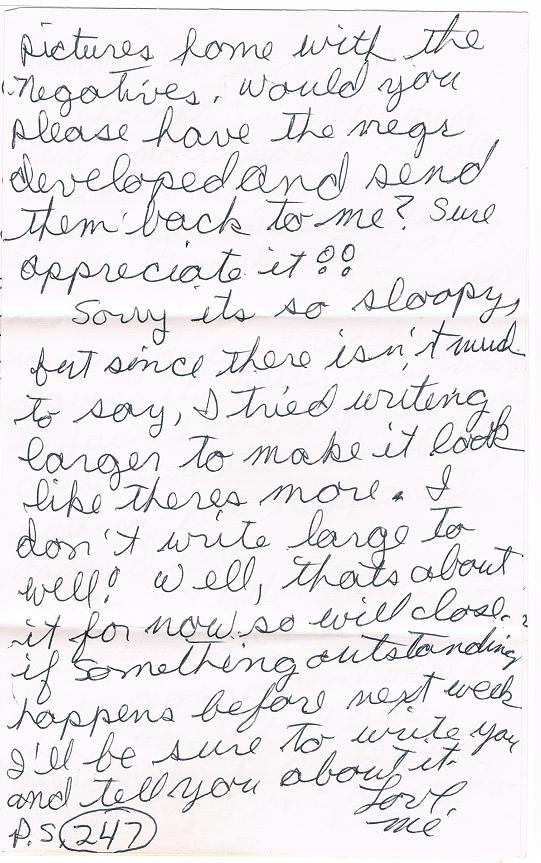 pictures home with the
negatives. Would you
please have the negs
developed and send
them back to me? Sure
appreciate it!!
Sorry its so sloopy,
but since there isn't much
to say, I tried writing
larger to make it look
like theres more. I
don't write large to
well! Well, thats about
it for now so will close.
if something outstanding
happens before next week
I'll be sure to write you
and tell you about it.
Love,
me
P.S. 247